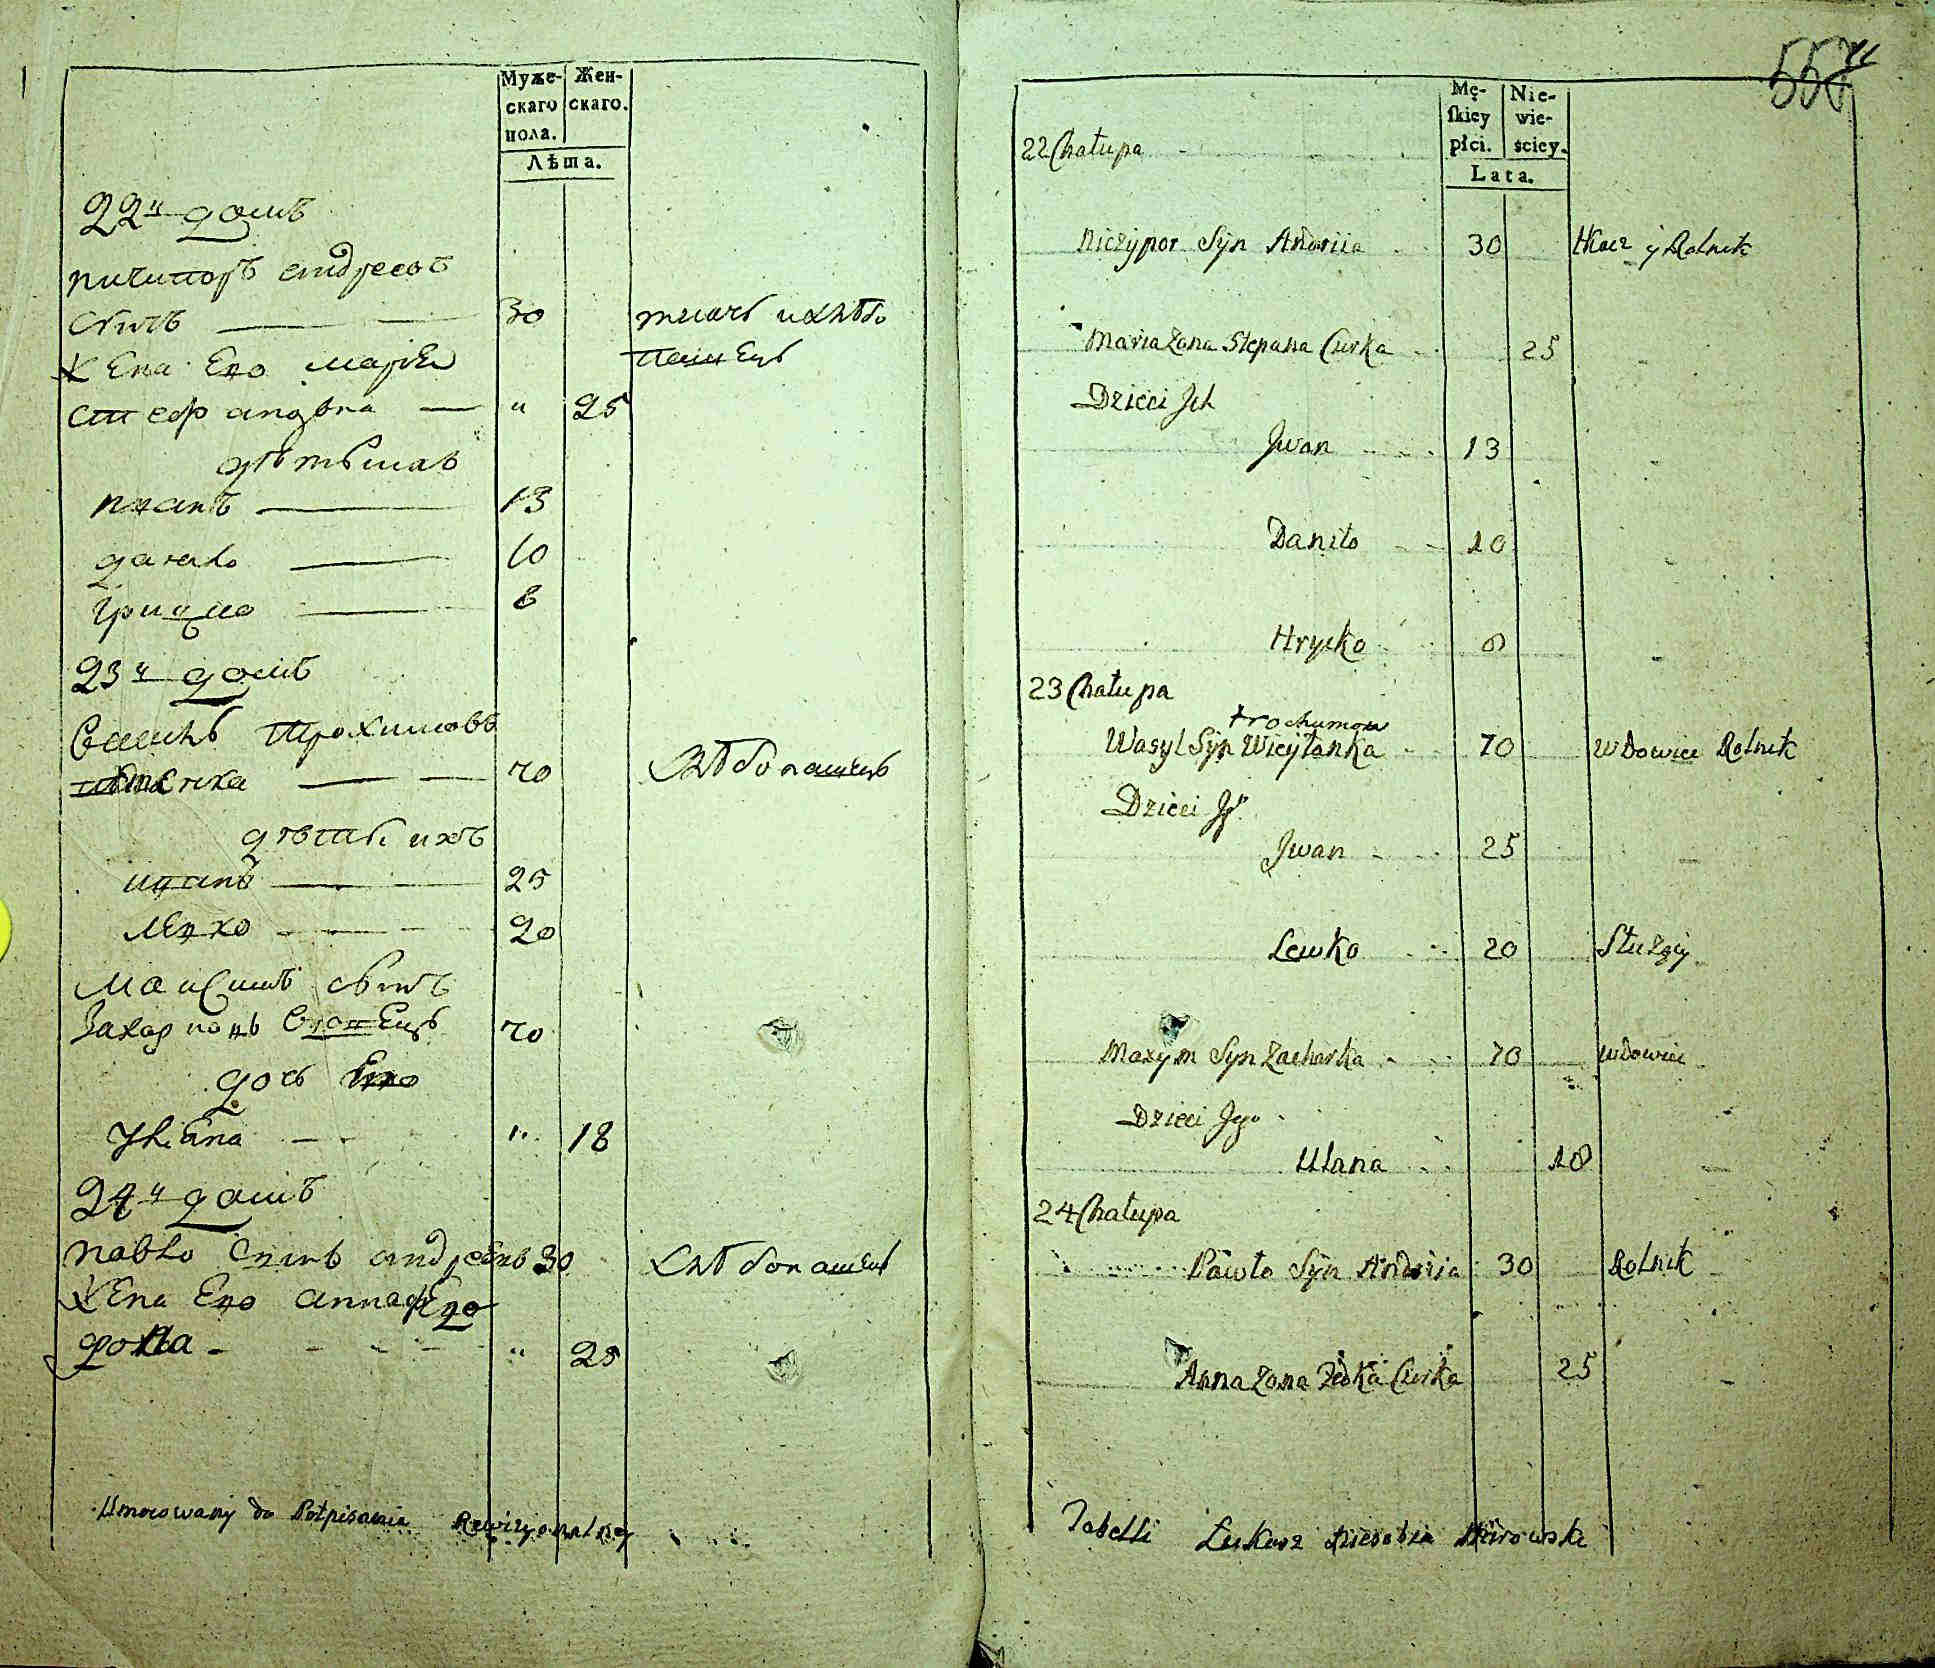 Муже-
скаго
пола.
Жен-
скаго.
Лѣта.
22й домъ
ничипоръ андреевъ
сынъ 30 ткачъ и хлѣбо
пашецъ
жена его марія
стефановна " 25
дѣти ихъ
иванъ 13
данило 10
грицко 8
23й домъ
Василь Трохимовъ
70 хлѣбопашецъ
дѣти ихъ
иванъ 25
левко 20
максимъ сынъ
Захар 70
дочь его
Улiана " 18
24й домъ
павло сынъ андреевъ 30 хлѣбопашецъ
жена его анна фе
дова " 25
Umocowany do Potpisania Rewizyonalney
550
11
Mę-
skiey
płci.
Nie-
wie-
sciey.
Lata.
22 Chałupa
Niczypor Syn Andrija 30 tkacz y Rolnik
Maria Żona Stepana Curka 25
Dzieci Jch
Jwan 13
Daniło 10
Hrycko 8
23 Chałupa
trochumow
Wasyl Syn Wieytanka 70 wdowiec Rolnik
Dzieci Jgo
Jwan 25
Lewko 20 Służący
Maxym Syn Zacharka 70 wdowiec
Dzieci Jego
Ulana 18
24 Chałupa
Pawło Syn Andrija 30 Rolnik
Anna Żona Fedka Curka 25
Tabelli Łukasz